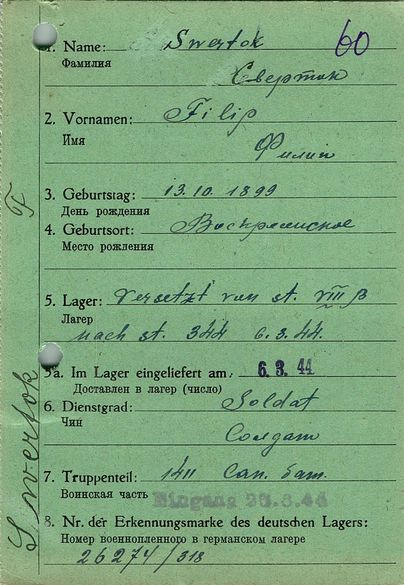 1. Name: Swertok 60
Фамилия Сверток
2. Vornamen: Filip
Имя Филип
3. Geburtstag: 13.10.1899
День рождения
4. Geburtsort: Воскресенское
Место рожления
5. Lager: versetzt von st. VIII B
Лагер nach st. 344 6.3.44.
5a. Im Lager eingeliefert am: 6. 3. 44
Доставлен в лагер (число)
6. Dienstgrad: Soldat
Чин Солдат
7. Truppenteil: 1411 Сап. бат.
Воинская часть Eingang
8. Nr. der Erkennungsmarke des deutschen Lagers:
Номер военнопленного в германском лагере
26274/318
Swertok F